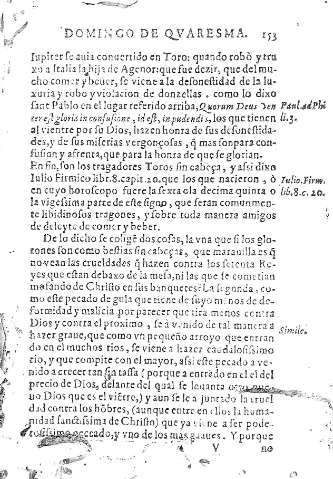 DOMINGO DE QVARESMA. 153
Iupiter se auia conuertido en Toro: quando robò y tru
xo a Italia la hija de Agenor: que fue dezir, que del mu-
cho comer y beuer, se viene a la desonestidad de la lu-
xuria y robo y violacion de donzellas. como lo dixo
sant Pablo en el lugar referido arriba, Quorum Deus ven
ter est gloria in confusione, id est, in pudendis, los que tienen
al vientre por su Dios, hazen honra de sus desonestida-
des, y de sus miserias vergonçosas, q̃ mas son para con-
fusion y afrenta, que para la honra de que se glorian.
Paul. ad Phi
li. 3.
En fin, son los tragadores Toros sin cabeça, y assi dixo
Iulio Firmico libr. 8. capit. 20. que los que nacieron, ò
en cuyo horoscopo fuere la sexta ola decima quinta o
la vigessima parte de este signo, que seran comunmen-
te libidinosos tragones, y sobre toda manera amigos
de deleyte de comer y beber.
Iulio. Firm.
lib. 8. c. 20.
De lo dicho se colige dos cosas, la vna que si los glo-
tones son como bestias sin cabeças, que marauilla es q̃
no vean las crueldades q̃ hazen contra los setenta Re-
yes que estan debaxo de la mesa, ni las que se cometian
mofando de Christo en sus banquetes? La segunda, co-
mo este pecado de gula que tiene de suyo menos de de-
formidad y malicia por parecer que tira menos contra
Dios y contra el proximo, se à venido de tal manera a
hazer graue, que como vn pequeño arroyo que entran
do en el muchos rios, se viene a hazer caudalosissimo
rio, y que compite con el mayor, assi este pecado a ve-
nido a crecer tan sin tassa (porque a entrado en el del
precio de Dios, delante del qual se leuanta
uo Dios que es el viẽtre,) y aun se le a juntado la cruel
dad contra los hõbres, (aunque entre ellos la huma-
nidad sanctissima de Christo) que ya viene a ser pode-
rosissimo peccado, y vno de los mas graues. Y porque
Simile.
V no